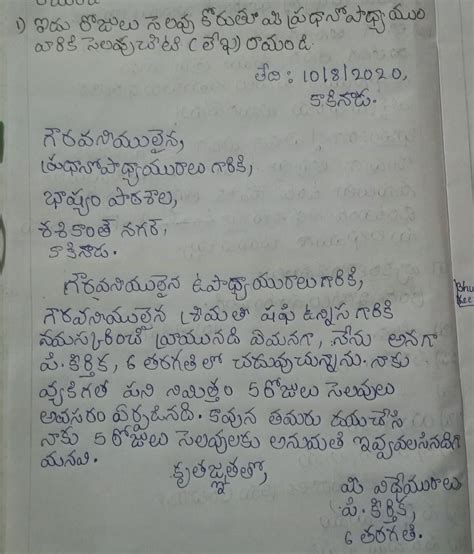 1) ఐదు రోజులు సెలవు కోరుతూ మీ ప్రధానోపాధ్యాయుల
వారికి సెలవు చీటి (లేఖ) రాయండి.
తేది : 10/8/2020,
కాకినాడ.
గౌరవనీయులైన,
ప్రధానోపాధ్యాయురాలు గారికి,
భాష్యం పాఠశాల,
శశికాంత్ నగర్,
కాకినాడ.
గౌరవనీయులైన ఉపాధ్యాయురాలు గారికి,
గౌరవనీయులైన శ్రీమతి షఫి ఉన్నిస గారికి
నమస్కరించి వ్రాయునది ఏమనగా, నేను అనగా
పి. కీర్తిక, 6 తరగతి లో చదువుచున్నాను. నాకు
వ్యక్తిగత పని నిమిత్తం 5 రోజులు సెలవులు
అవసరం ఏర్పడినది. కావున తమరు దయచేసి
నాకు 5 రోజులు సెలవులకు అనుమతి ఇవ్వవలసినదిగా
మనవి.
కృతజ్ఞతతో,
మీ విధేయురాలు
పి. కీర్తిక,
6 తరగతి.